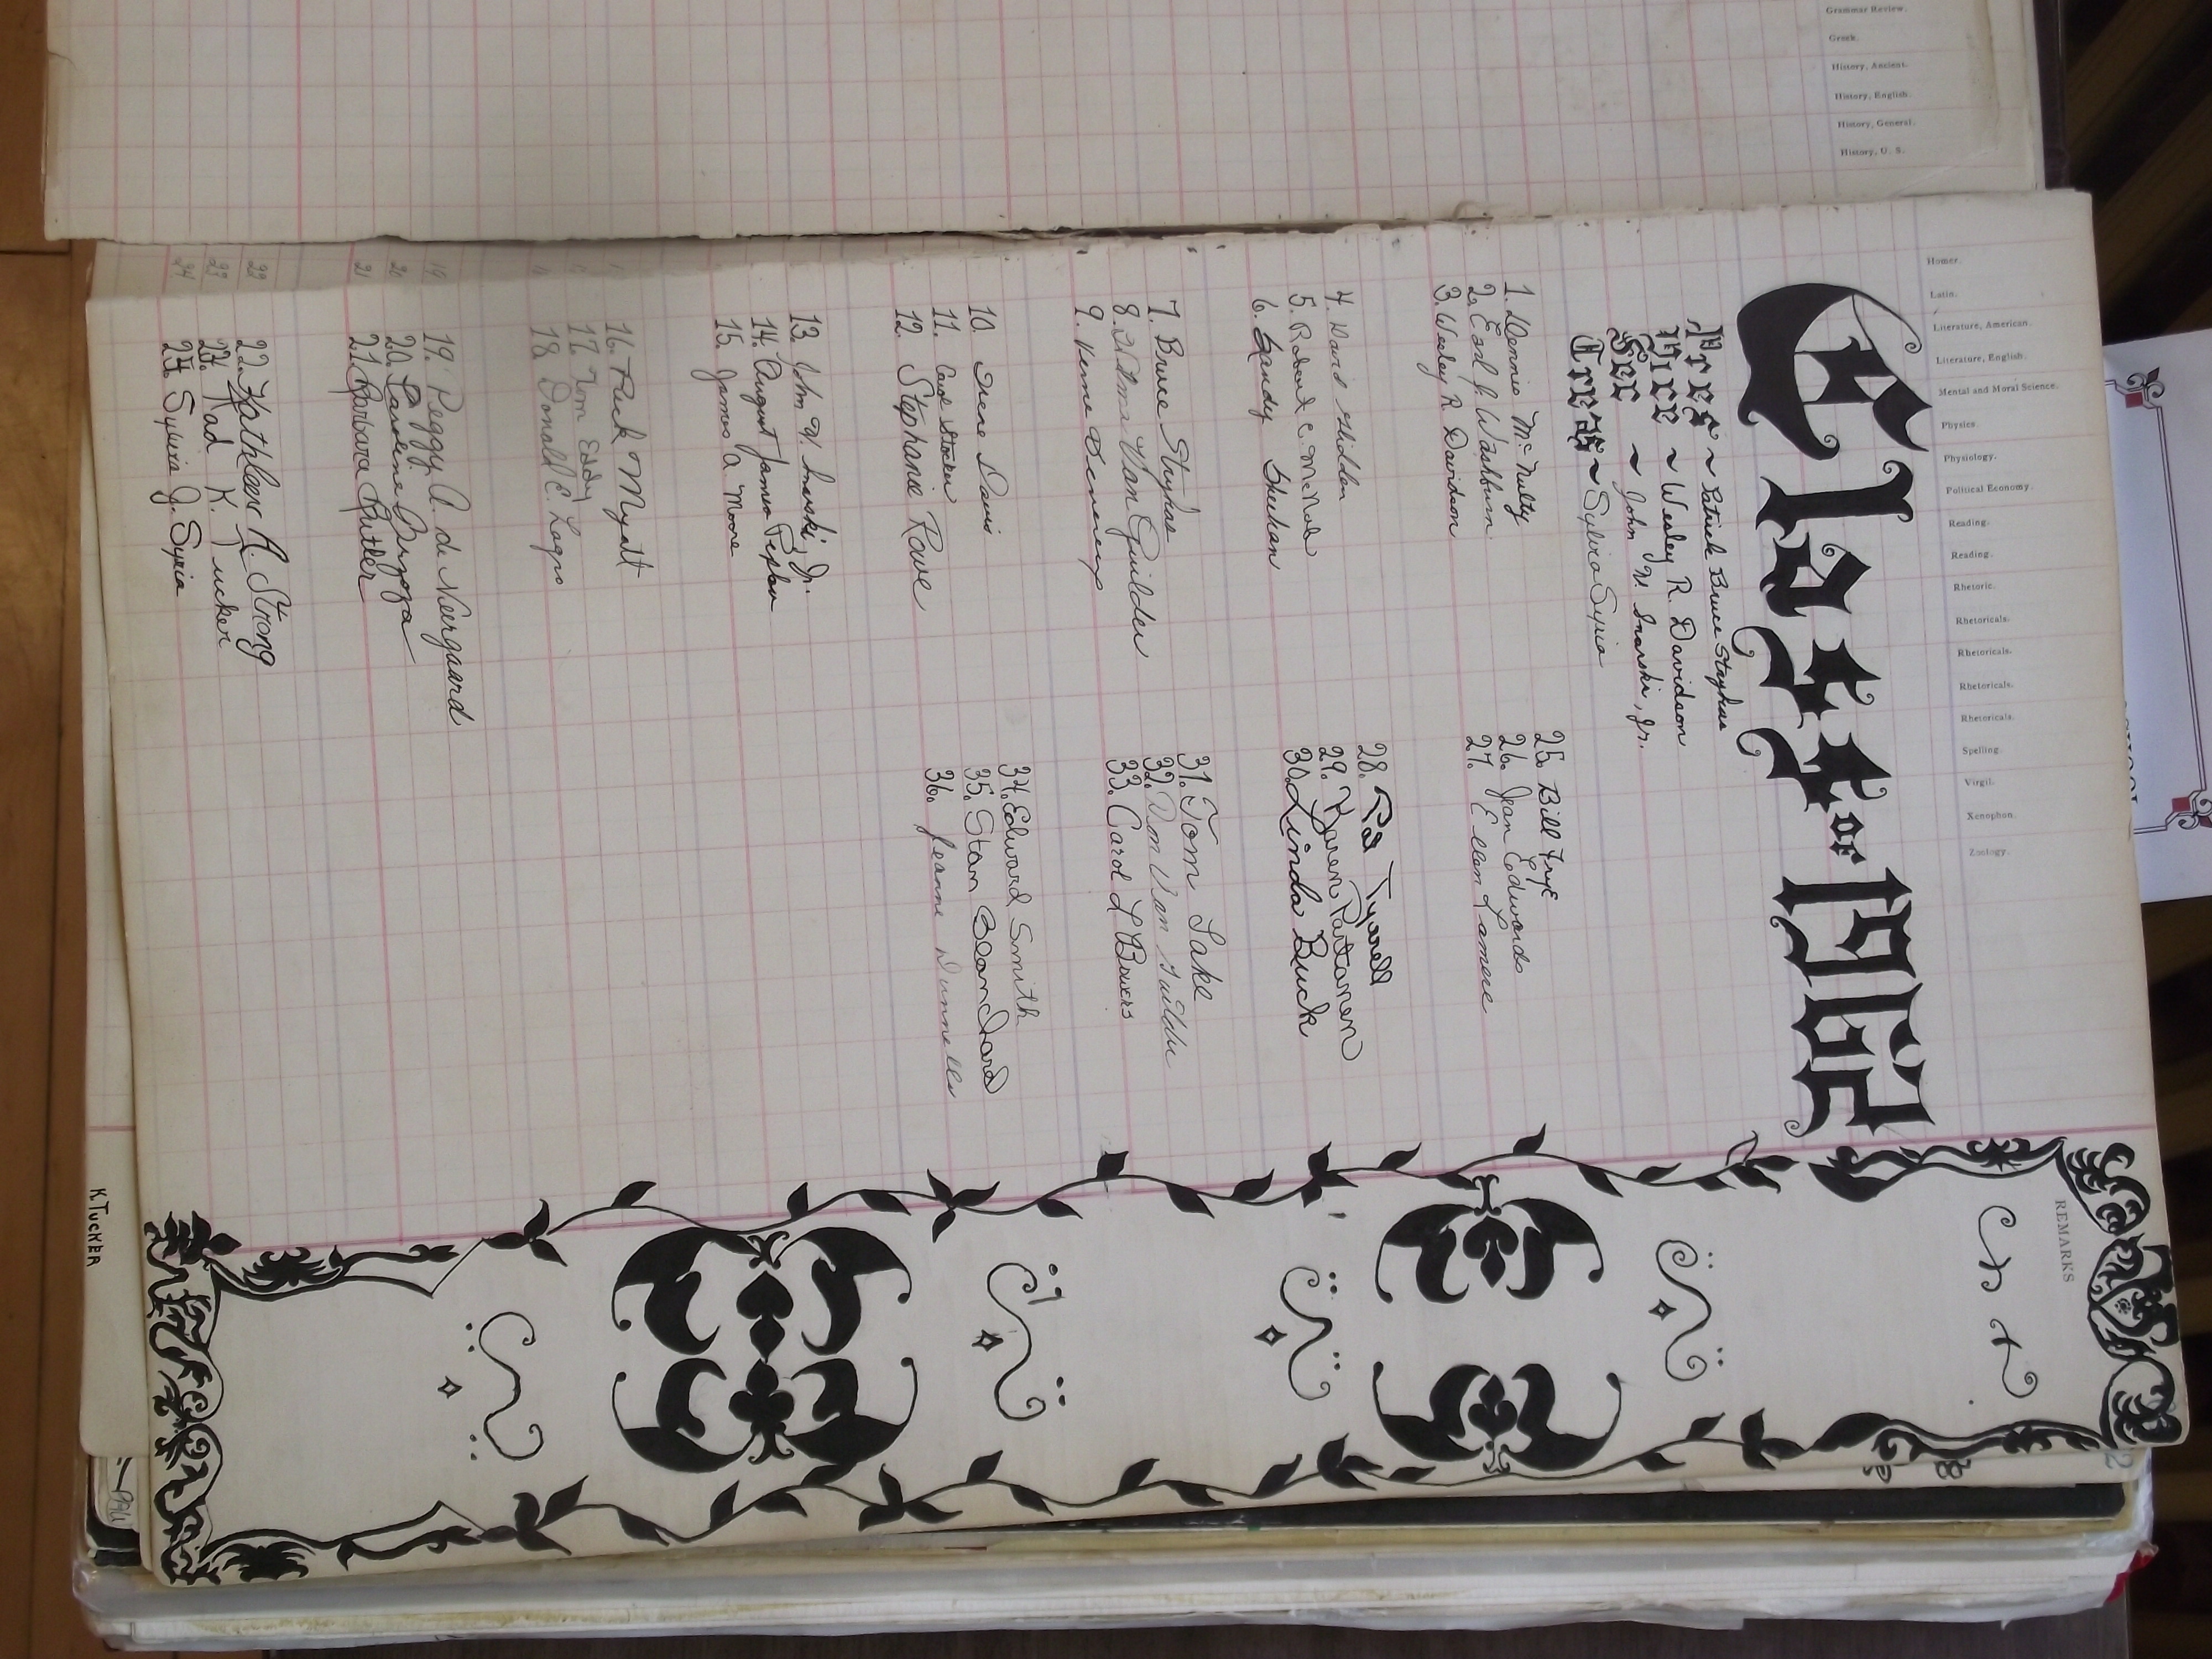 Grammar Review.
Greek.
History, Ancient.
History, English.
History, General.
History, U. S.
Homer.
Latin.
Literature, American.
Literature, English.
Mental and Moral Science.
Physics.
Physiology.
Political Economy.
Reading.
Reading.
Rhetoric.
Rhetoricals.
Rhetoricals.
Rhetoricals.
Rhetoricals.
Spelling.
Virgil.
Xenophon.
Zoology.
REMARKS
Class of 1962
Pres ~ Patrick Bruce Stryhas
Vice ~ Wesley R. Davidson
Sec ~ John W. Snarski, Jr.
Treas ~ Sylvia Syria
1. Dennis McNulty
2. Earl J. Washburn
3. Wesley R. Davidson
4. David Glidden
5. Robert C. McNeil
6. Sandy Sheehan
7. Bruce Stryhas
8. Van Guilder
9. Verne
10. Irene Davis
11. Carol Stocker
12. Stephanie Rowe
13. John W. Snarski, Jr.
14. August James Peplow
15. James A Moore
16. Myatt
17. Tom Eddy
18 Donald E. Lagro
19. Peggy A. de Neergaard
20.
21. Barbara Butler
22. Kathleen A. Strong
K. Tucker
Sylvia J. Syria
25. Bill Frye
26. Jean Edwards
27. Ellen Lamere
28. Pat Tyrell
29. Karen Partanen
30. Linda Buck
31. Tom Lake
32. Don Van Guilder
33. Carol L Bowers
34. Edward Smith
35. Stan Blanchard
36. Jeanne Dunnells
19
20
21
22
23
24
K TUCKER